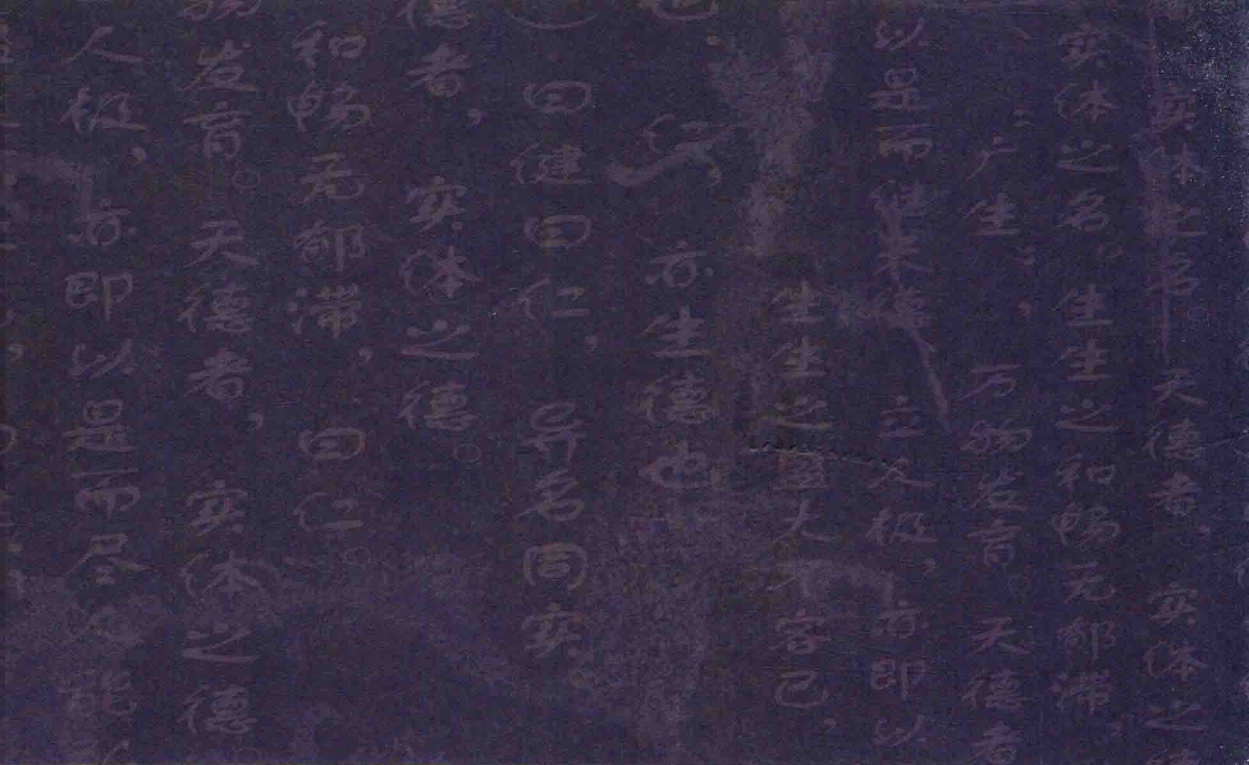 实体之名。天德者，实体之
实体之名。生生之和畅无郁滞，
广生，万物发育。天德者
以是而继天德立人极，亦即以
生生之盛大不容已，
也。仁，亦生德也
曰健曰仁，异名同实。
德者，实体之德。
和畅无郁滞，曰仁。
物发育。天德者，实体之德。
人极，亦即以是而尽人能